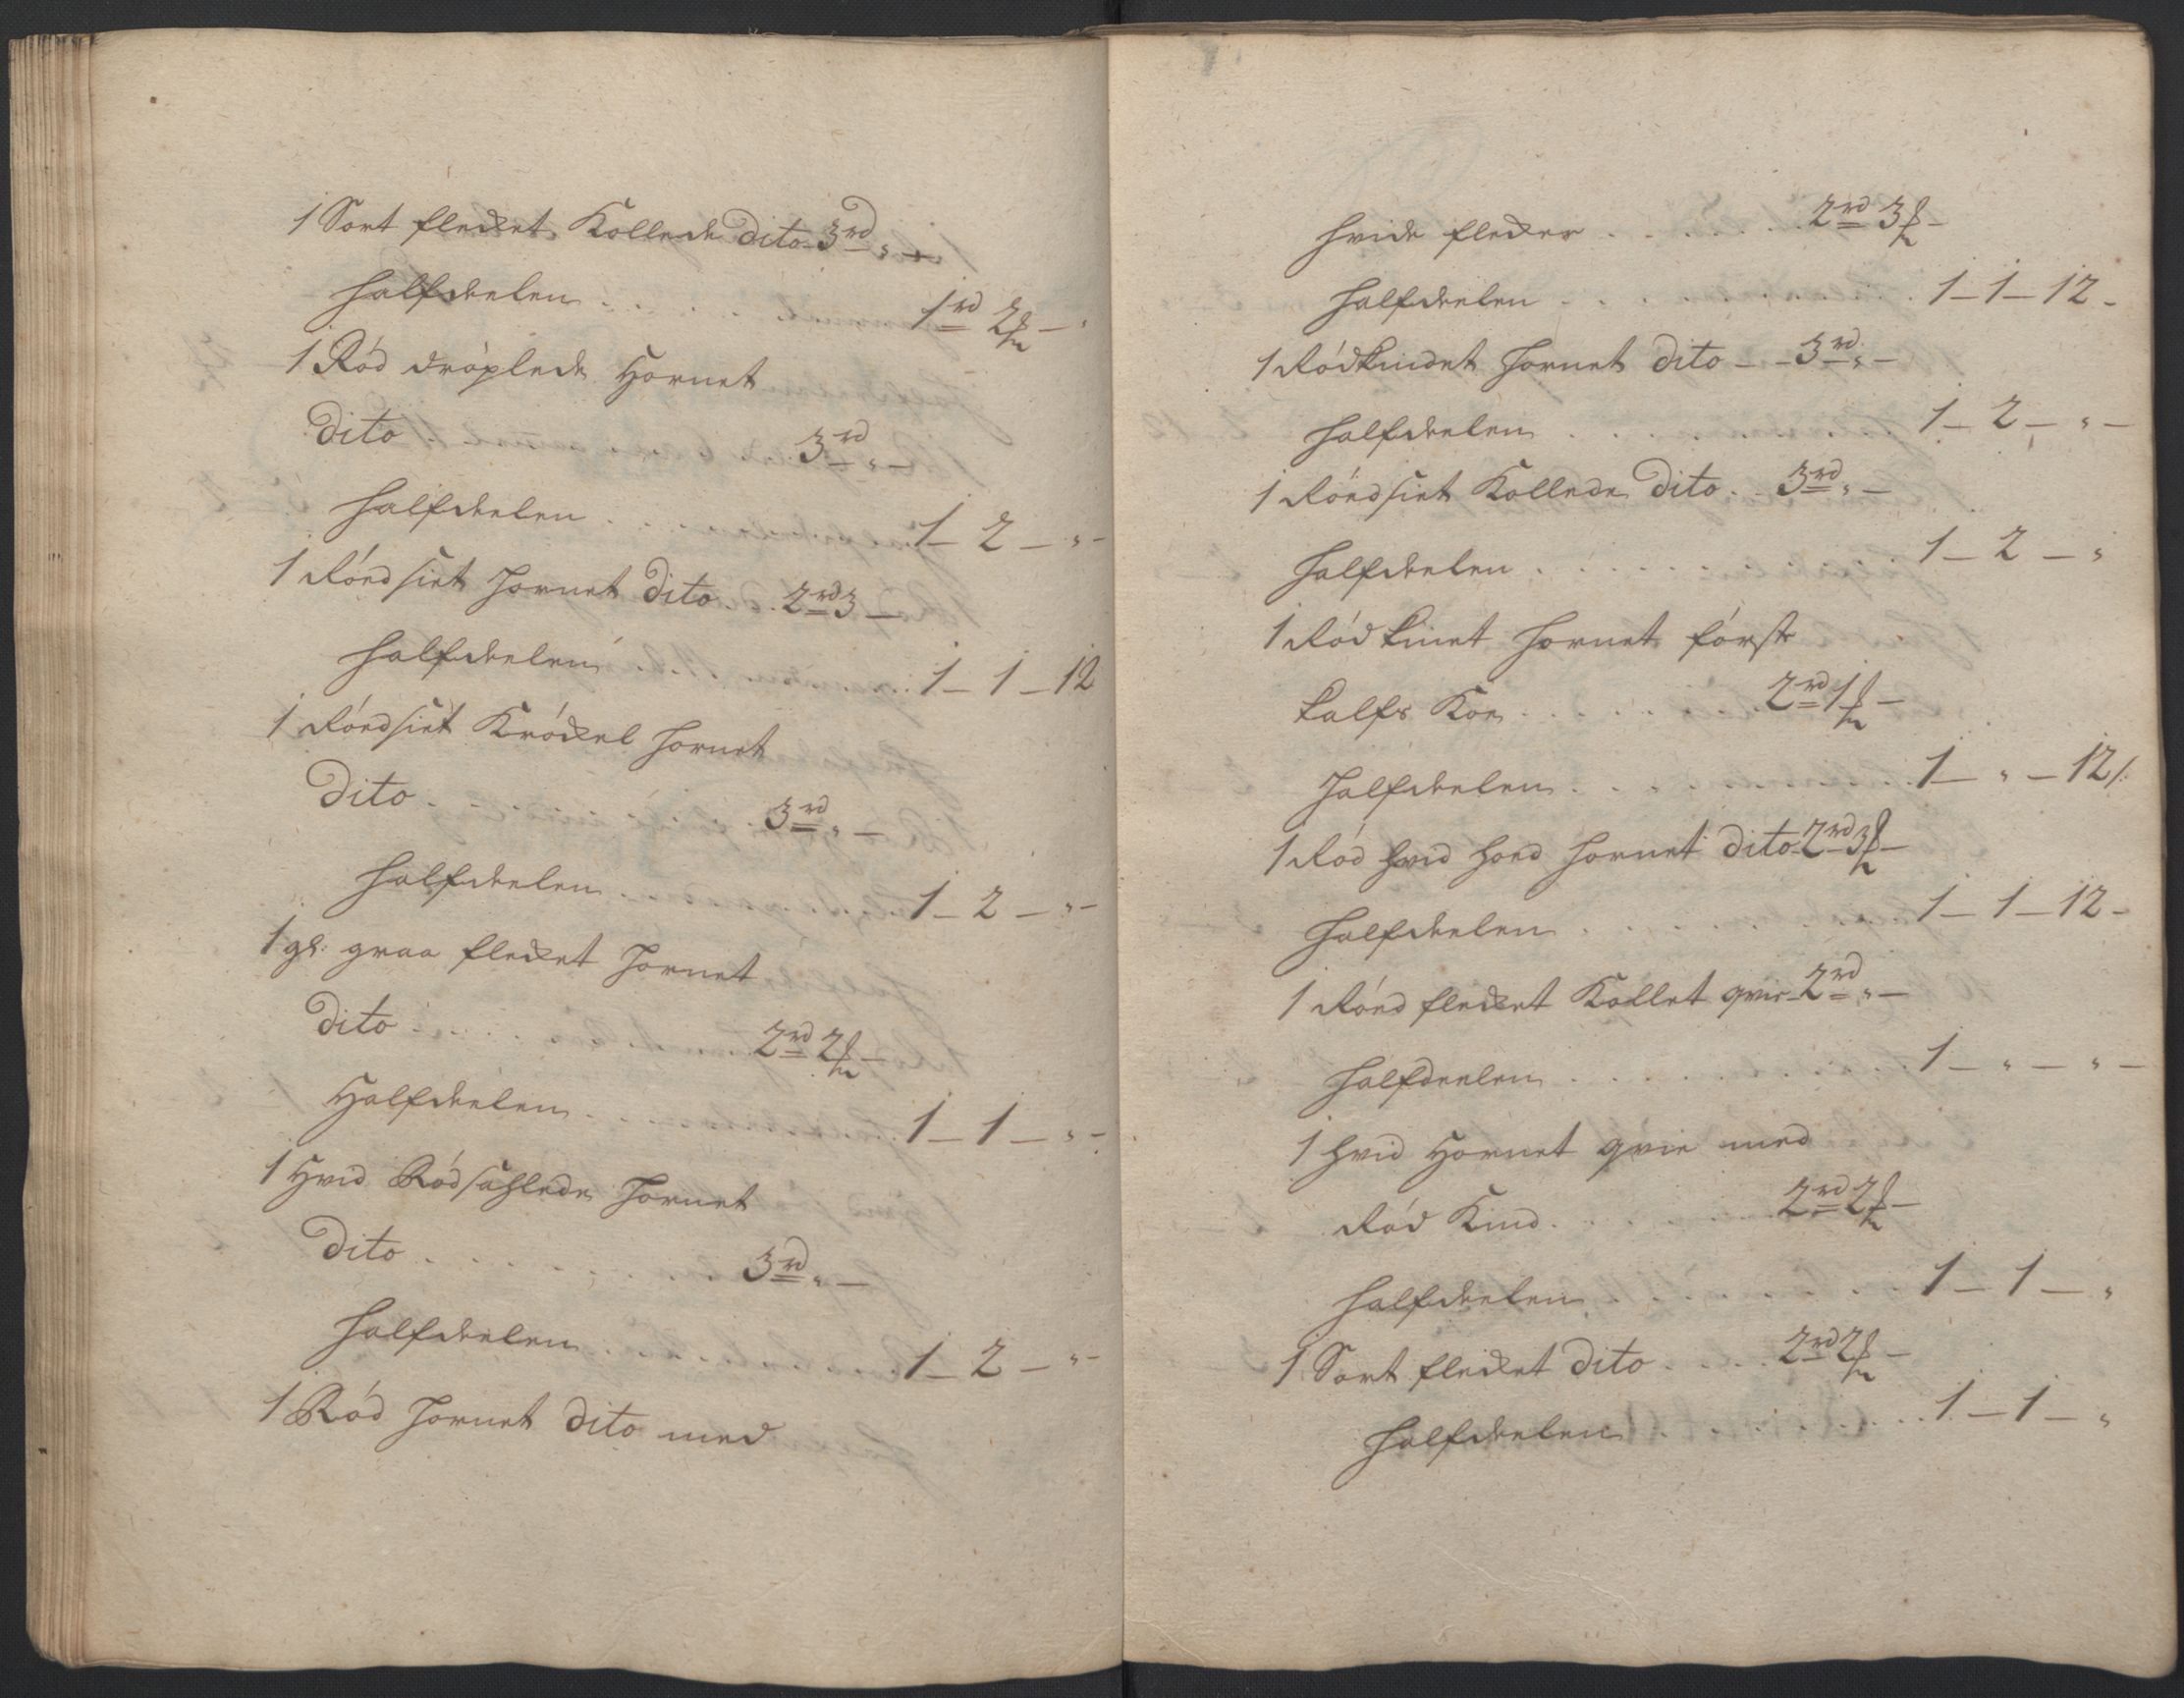 1 Sort flecket Kollede dito 3rd " –
halfdeelen . . . . . 1rd 2ß – "
1 Rød dröplede Hornet
dito . 3rd – " –
halfdeelen . . . . 1 – 2 – " –
1 Röedsiet hornet dito . 2rd 3 –
halfdeelen . . . 1 – 1 – 12
1 Röedsiet Kröckel hornet
dito . . . 3rd " –
halfdeelen . . . . 1 – 2 – " –
1 gl: graa flecket hornet
dito . . . . . 2rd 2ß –
Halfdeelen . . . . 1 – 1 – " –
1 Hvid Rödsahlede hornet
dito . . . . . . 3rd " –
halfdeelen . . . . 1 – 2 – " –
1 Röd hornet dito med
hvide flecker . . . . . . 2rd 3ß –
halfdeelen . . . . . . 1 – 1 – 12 –
1 Rödkindet hornet dito – – 3rd " –
halfdeelen . . . . . . 1 – 2 – " –
1 Röedsiet Kollede dito . . 3rd " –
halfdeelen . . . . . . 1 – 2 – "
1 Röd kinet hornet förste
kalfs Koe . . . . . 2rd 1ß –
halfdeelen . . . . . . 1 – " – 12 /:
1 Röd hvid hoed hornet dito 2rd 3ß –
halfdeelen . . . . . . 1 – 1 – 12 –
1 Röed flecket Kollet qvie 2rd " –
halfdeelen . . . . . . 1 – " – " –
1 hvid Hornet qvie med
Röd Kind . . . . . 2rd 2ß –
halfdeelen . . . . . . 1 – 1 – "
1 Sort flecket dito . . . . 2rd 2ß –
halfdeelen . . . . . . 1 – 1 – "